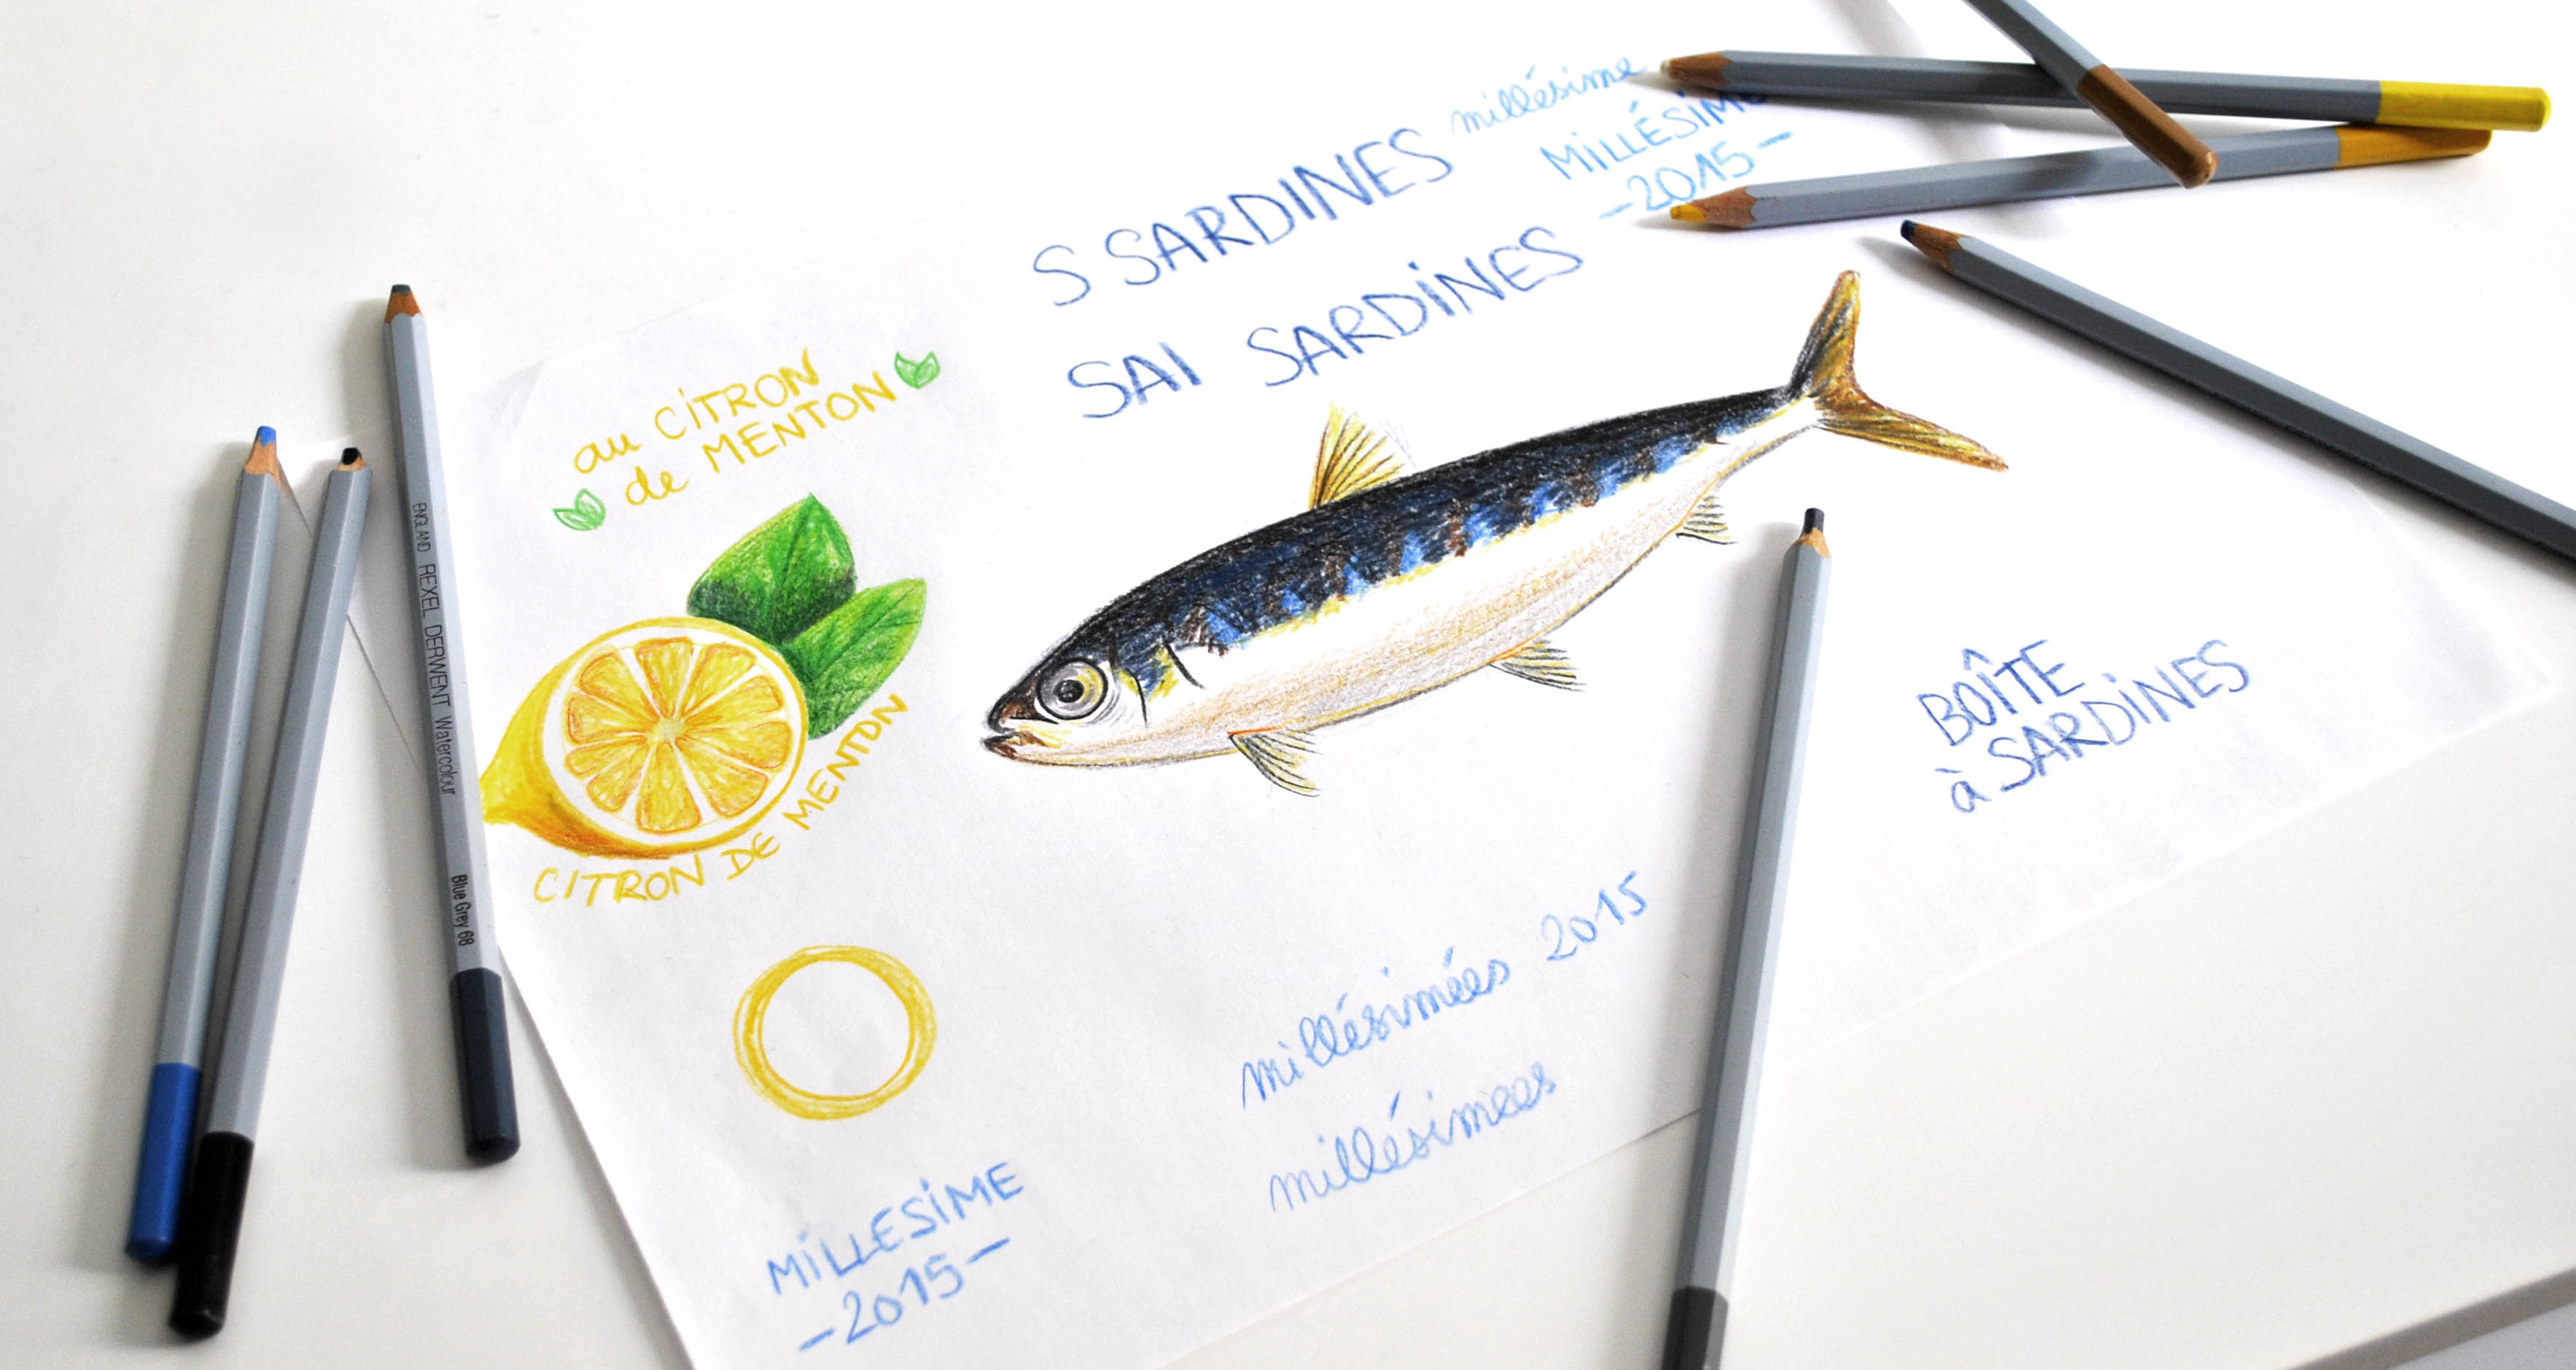 S SARDINES
millésime
MILLÉSIME
-2015-
SAI SARDINES
au CITRON
de MENTON
CITRON DE MENTON
BOÎTE
à SARDINES
millésimées 2015
millésimees
MILLESIME
-2015-
ENGLAND REXEL DERWENT Watercolour Blue Grey 68